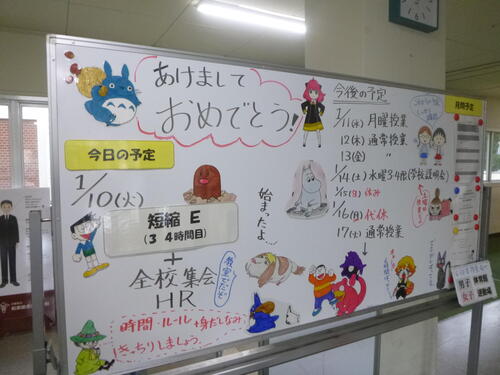 あけまして
おめでとう!
今日の予定
1/10(火)
短縮 E
(3 4時間目)
+
全校集会
HR
教室でだぞ
時間・ルール+身だしなみ
きっちりしましょう。
始まったよ…
今後の予定
1/11(水) 月曜授業
12(木) 通常授業
13(金) 〃
1/14(土) 水曜3 4限(学校説明会)
1/15(日) 休み
1/16(月) 代休
17(火) 通常授業
月間予定
男子 体育館
女子 運動場